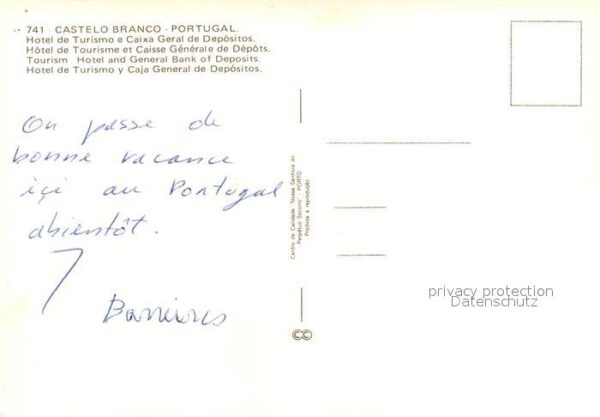 741 CASTELO BRANCO - PORTUGAL.
Hotel de Turismo e Caixa Geral de Depósitos.
Hôtel de Tourisme et Caisse Générale de Dépôts.
Tourism Hotel and General Bank of Deposits.
Hotel de Turismo y Caja General de Depósitos.
On passe de
bonne vacance
içi au Portugal
abientôt.
Centro de Caridade "Nossa Senhora do
Perpétuo Socorro" - PORTO
Proibida a reprodução
privacy protection
Datenschutz
CC